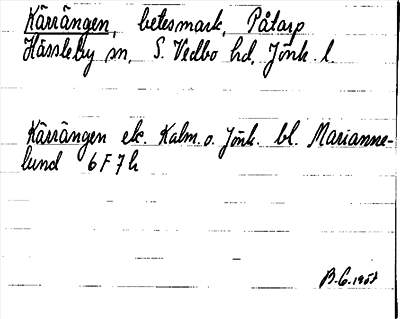 Kärrängen, betesmark, Påtarp
Hässleby sn, S. Vedbo hd, Jönk. l.
Kärrängen ek. Kalm. o. Jönk. bl. Marianne-
lund 6 F 7 h
B.G.